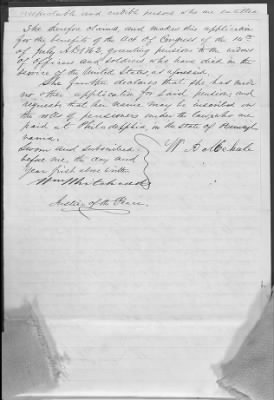 respectable and credible persons who are entitled
She therefore claims, and makes this application
for the benefits of the Act of Congress of the 14th
of July A.D. 1862, granting pensions to the widows
of officers and soldiers who have died in the
service of the United States, as aforesaid.
She further declares that she has made
no other application for said pension, and
requests that her name may be inscribed on
the roll of pensioners under the law who are
paid at Philadelphia, in the state of Pennsyl
vania.
Sworn and subscribed
before me, the day and
year first above written
Justice of the Peace.